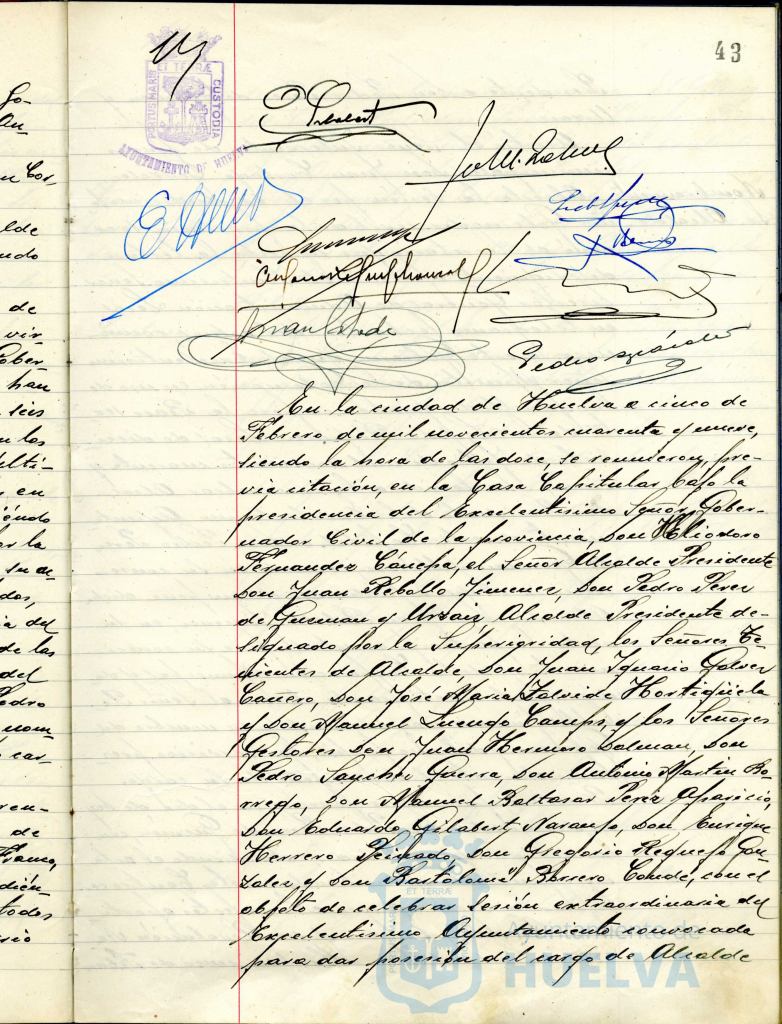 Go-
an-
n Cor-
lde
ndo
de
vir
ober
han
seis
n los
ulti-
s en
iéndo
or la
su a-
dos,
ia del
de las
del
Pedro
nom-
car-
ren-
de
Franco,
dién-
todos
rio
43
PORTUS MARIS
ET TERRÆ
CUSTODIA
AYUNTAMIENTO DE HUELVA
Pedro
En la ciudad de Huelva a cinco de
Febrero de mil novecientos cuarenta y nueve,
siendo la hora de las doce, se reunieron, pre-
via citación, en la Casa Capitular bajo la
presidencia del Excelentísimo Señor Gober-
nador Civil de la provincia, Don Heliodoro
Fernandez Cánepa, el Señor Alcalde Presidente
Don Juan Rebollo Jimenez, Don Pedro Perez
de Guzman y Urzaiz Alcalde Presidente de-
signado por la Superioridad, los Señores Te-
nientes de Alcalde, Don Juan Ignacio Galvez
Cañero, Don José Maria Zalvide Hortigüela
y Don Manuel Luengo Camps, y los Señores
Gestores Don Juan Hermoso Dolman, Don
Pedro Sanchez Guerra, Don Antonio Martin Bo-
rrego, Don Manuel Baltasar Perez Aparicio,
Don Eduardo Gilabert Naranjo, Don Enrique
Herrero Peinado, Don Gregorio Requejo Gon-
zalez y Don Bartolomé Borrero Conde, con el
objeto de celebrar sesión extraordinaria del
Excelentísimo Ayuntamiento convocada
para dar posesión del cargo de Alcalde
ET TERRÆ
Ayuntamiento de
HUELVA